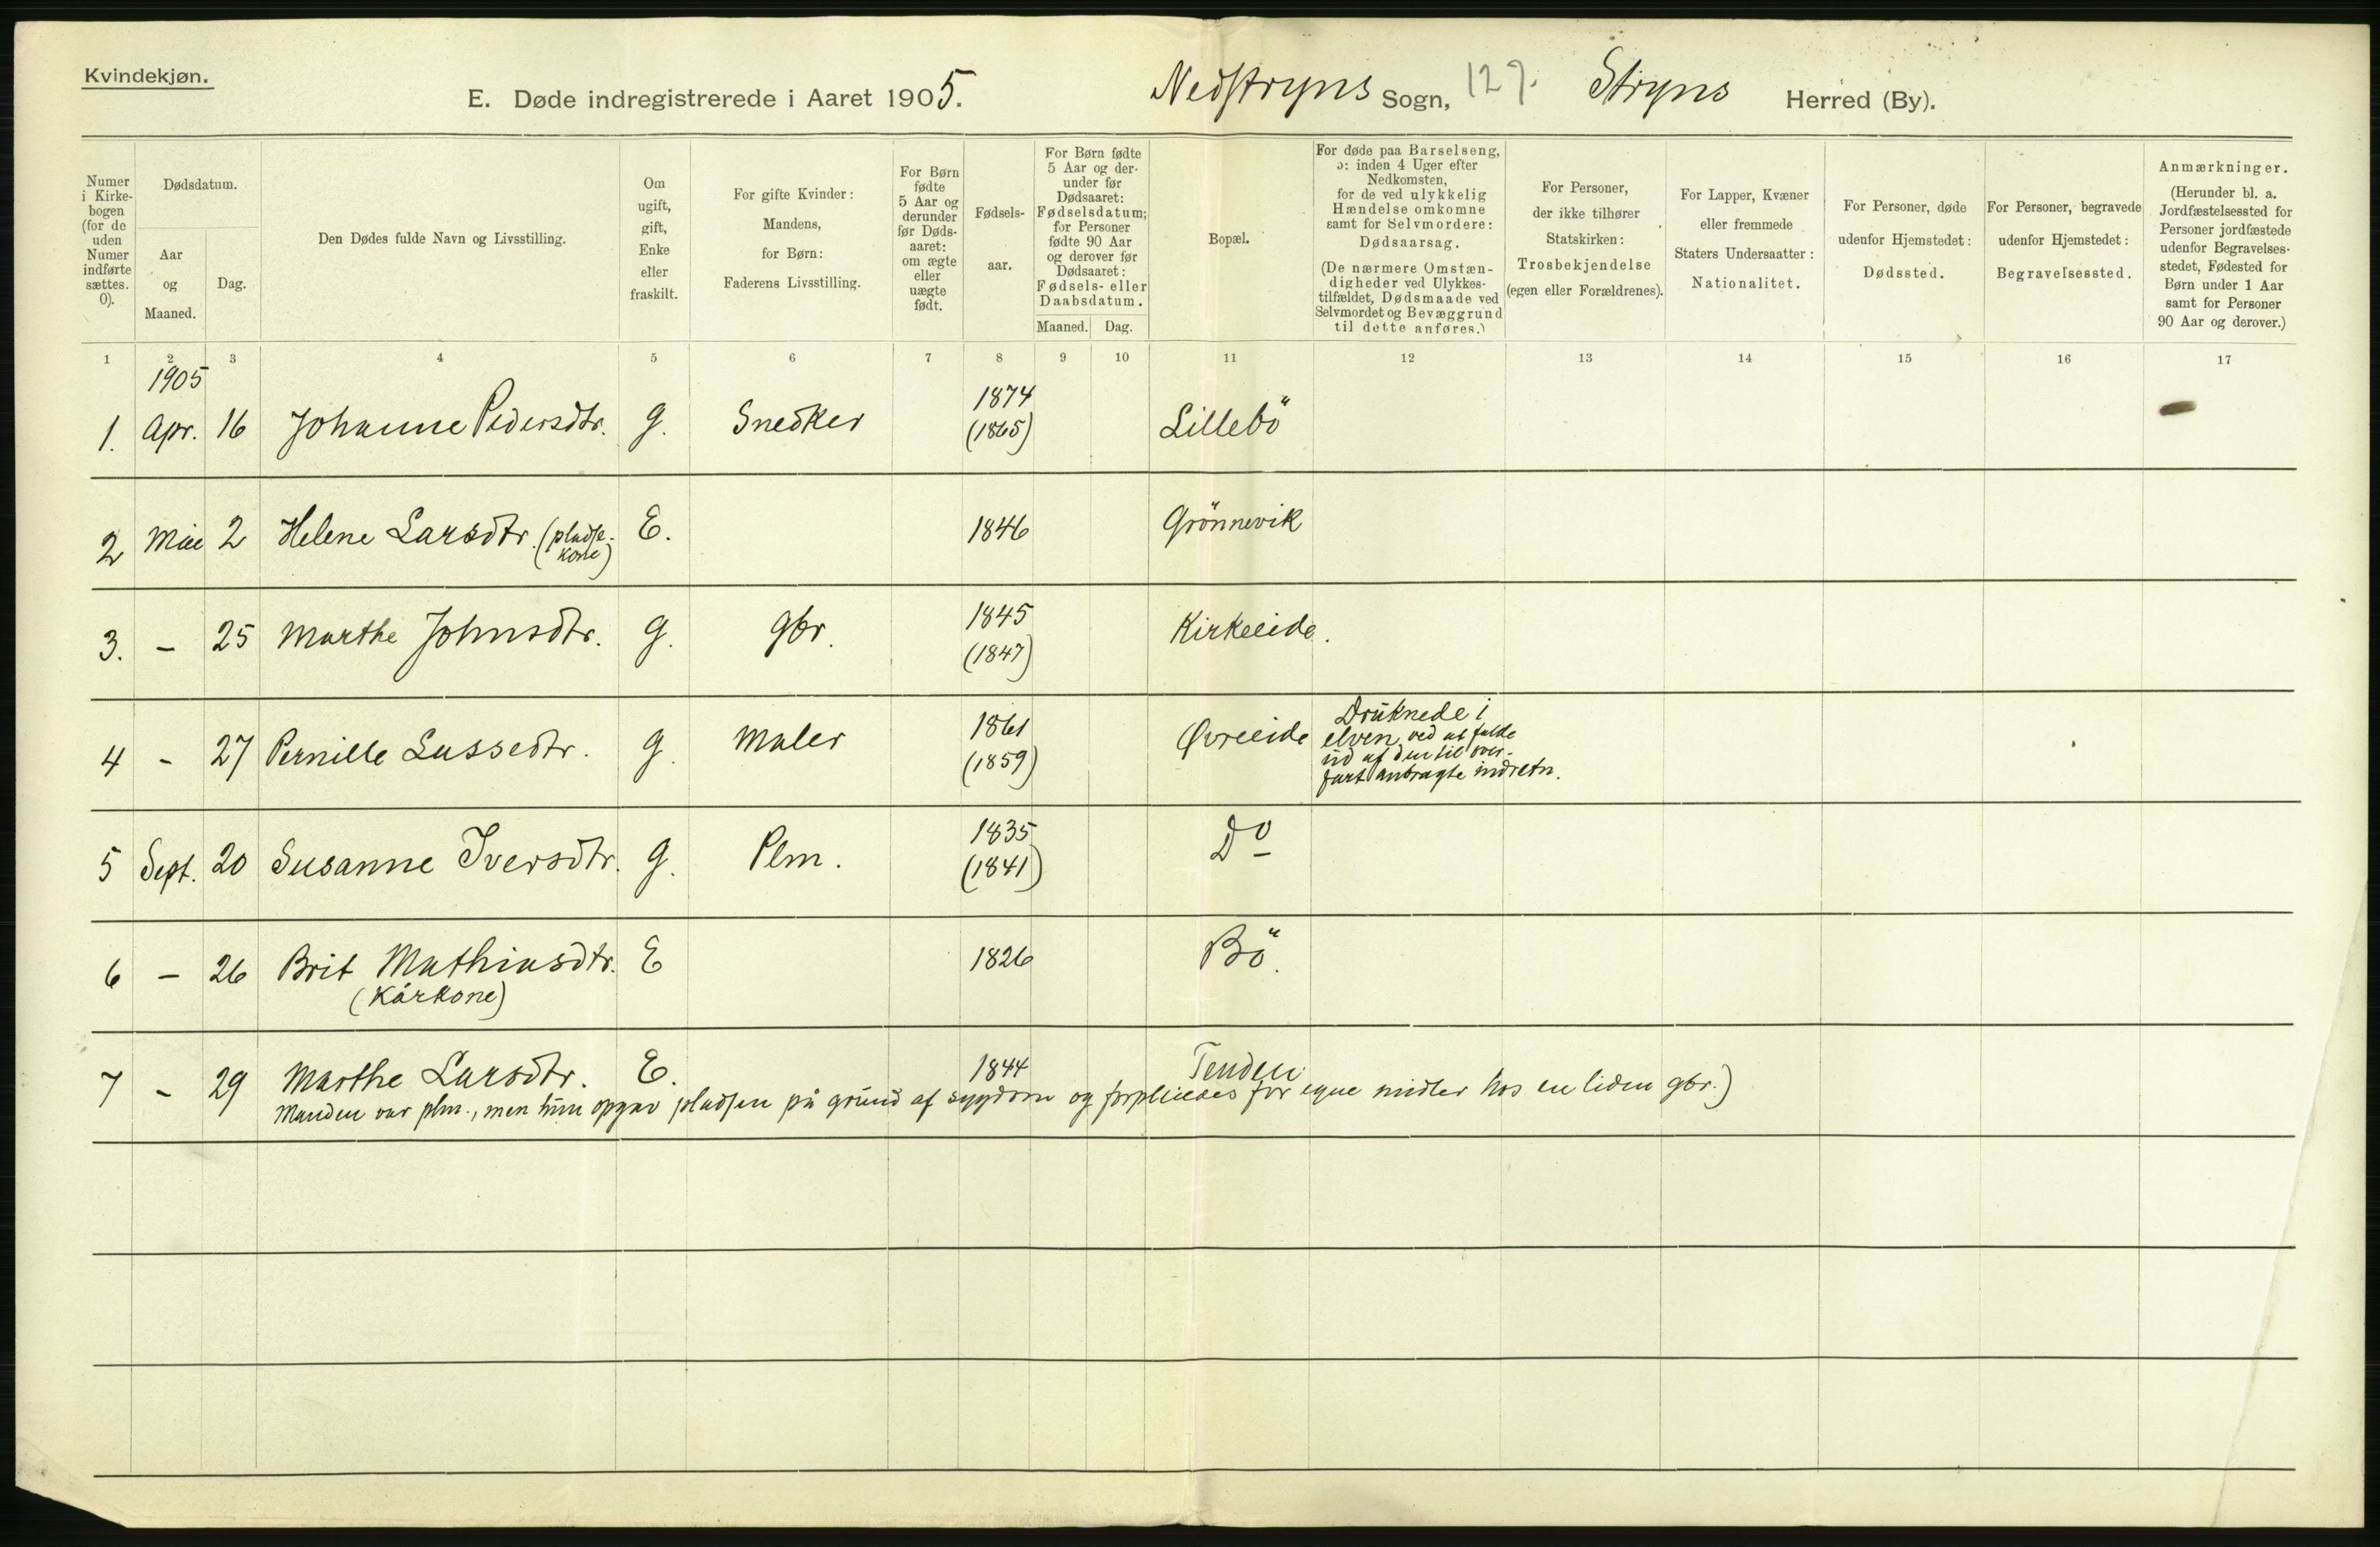 Kvindekjøn.
E. Døde indregistrerede i Aaret 1905. Nedstryns Sogn, 127. Stryns Herred (By).
Numer i Kirke-bogen (for de uden Numer indførte sættes. 0).
Dødsdatum.
Aar og Maaned.
Dag.
Den Dødes fulde Navn og Livsstilling.
Om ugift, gift, Enke eller fraskilt.
For gifte Kvinder: Mandens, for Børn: Faderens Livsstilling.
For Børn fødte 5 Aar og derunder før Døds-aaret: om ægte eller uægte født.
Fødsels-aar.
For Børn fødte 5 Aar og der-under før Dødsaaret: Fødselsdatum; for Personer fødte 90 Aar og derover før Dødsaaret: Fødsels- eller Daabsdatum.
Maaned. Dag.
Bopæl.
For døde paa Barselseng, ɔ: inden 4 Uger efter Nedkomsten, for de ved ulykkelig Hændelse omkomne samt for Selvmordere: Dødsaarsag.
(De nærmere Omstæn-digheder ved Ulykkes-tilfældet, Dødsmaade ved Selvmordet og Bevæggrund til dette anføres.)
For Personer, der ikke tilhører Statskirken: Trosbekjendelse (egen eller Forældrenes).
For Lapper, Kvæner eller fremmede Staters Undersaatter: Nationalitet.
For Personer, døde udenfor Hjemstedet: Dødssted.
For Personer, begravede udenfor Hjemstedet: Begravelsessted.
Anmærkninger.
(Herunder bl. a. Jordfæstelsessted for Personer jordfæstede udenfor Begravelses-stedet, Fødested for Børn under 1 Aar samt for Personer 90 Aar og derover.)
1 2 3 4 5 6 7 8 9 10 11 12 13 14 15 16 17
1905
1. Apr. 16 Johanne Pedersdtr. g. Snedker 1874 (1865) Lillebö
2 Mai 2 Helene Larsdtr. (pladse-kone) E. 1846 Grönnevik
3. – 25 Marthe Johnsdtr. g. gbr. 1845 (1847) Kirkeeide.
4 – 27 Pernille Lassedtr. g. Maler 1861 (1859) Øvreeide
Druknede i
elven ved at falde
ud af den til over-
fart anbragte indretn.
5 Sept. 20 Susanne Iversdtr. g. Plm. 1835 (1841) Do
6 – 26 Brit Mathiasdtr. E 1826 Bö.
(Kårkone)
7 – 29 Marthe Larsdtr. E. 1844 Tenden
Manden var plm., men hun opgav pladsen på grund af sygdom og forpleiedes for egne midler hos en liden gbr.)